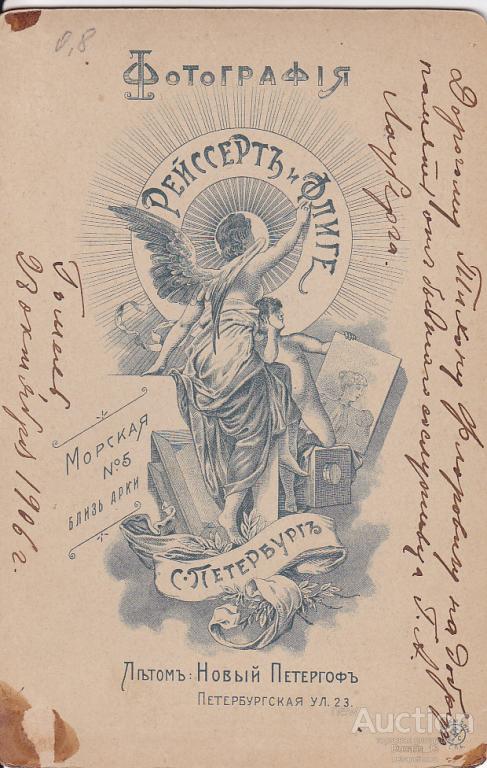 0,8
Фотографія
Рейссертъ и Флиге
Морская
№5
близь арки
С-Петербургъ
Лѣтомъ: Новый Петергофъ
Петербургская ул. 23.
Дорогому Тихону Флоровичу на добрую
память отъ бывшаго сослуживца
Гомель
октября 1906 г.
Auction